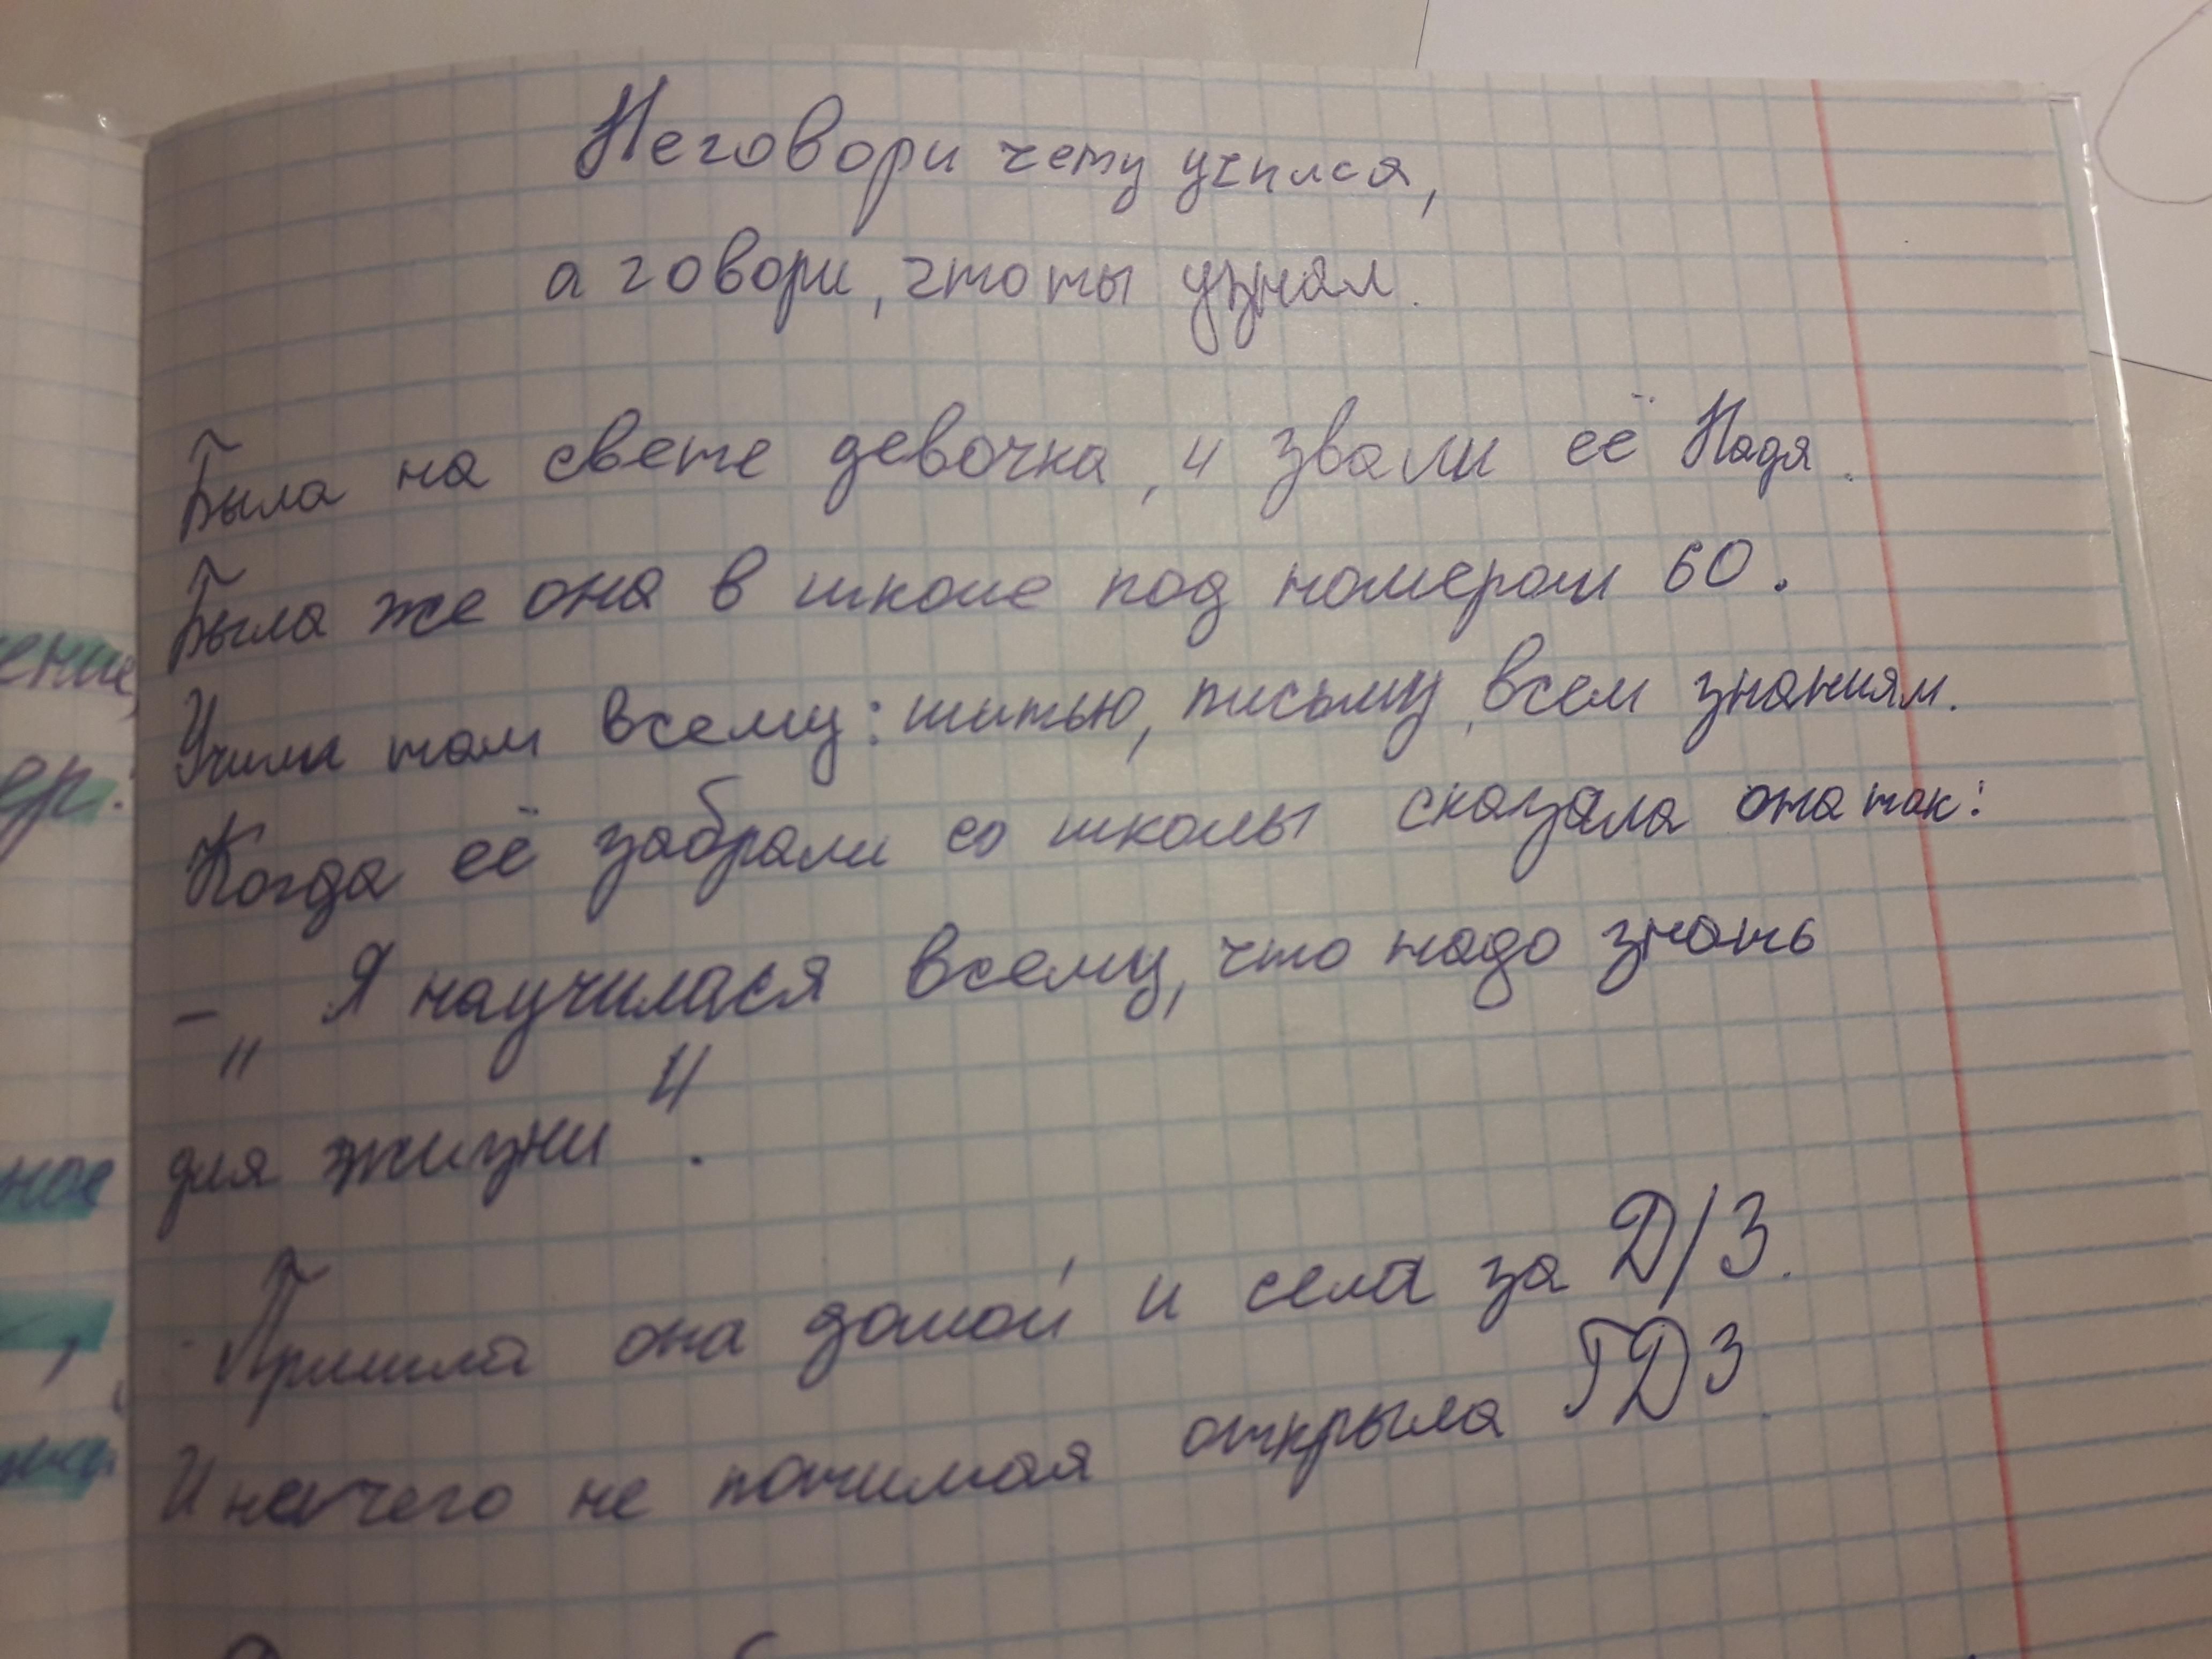 Неговори чему учился,
а говори, что ты узнал.
Была на свете девочка, и звали её Надя.
Была же она в школе под номером 60.
Учили там всему: шитью, письму, всем знаниям.
Когда её забрали со школы сказала она так:
-„ Я научилася всему, что надо знать
для жизни".
Пришла она домой и села за Д/З.
И ничего не понимая открыла ГДЗ.
ение,
ер:
ное